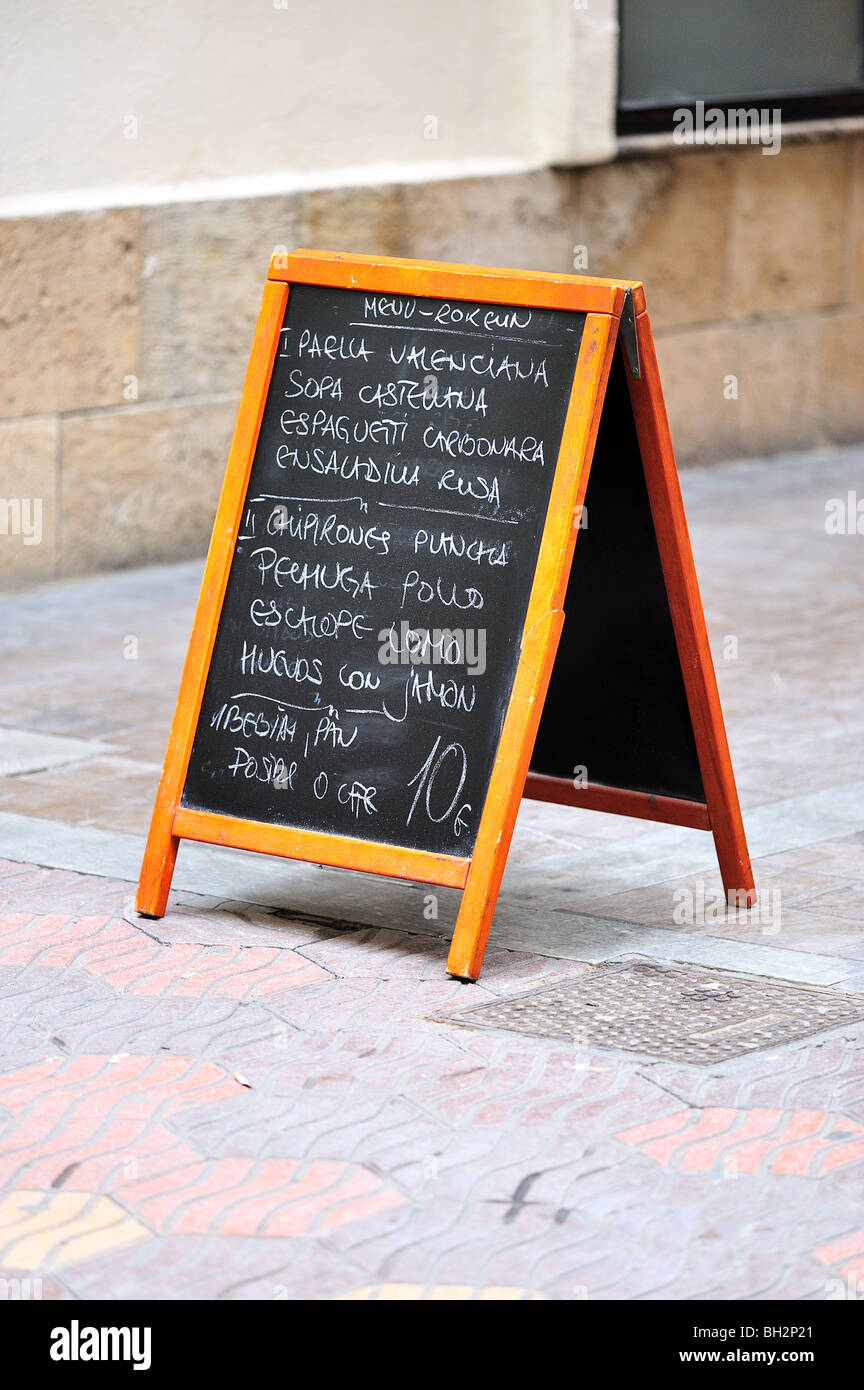 MENU-ROKELIN
I PAELLA VALENCIANA
SOPA CASTELLANA
ESPAGUETTI CARBONARA
ENSALADILLA RUSA
II CHIPIRONES PLANCHA
PECHUGA POLLO
ESCALOPE LOMO
HUEVOS CON JAMON
1 BEBIDA, PAN
POSTRE O CAFE
10€
alamy
Image ID: BH2P21
www.alamy.com